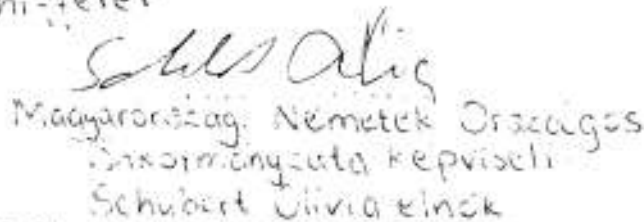 Magyarország Németek Országos
Önkormányzata képviseli
Schubert Olívia elnök